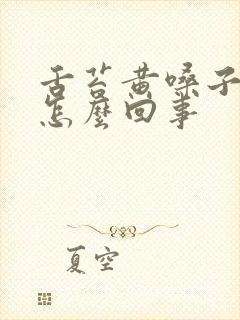 舌苔黄嗓子
怎麼回事
夏空